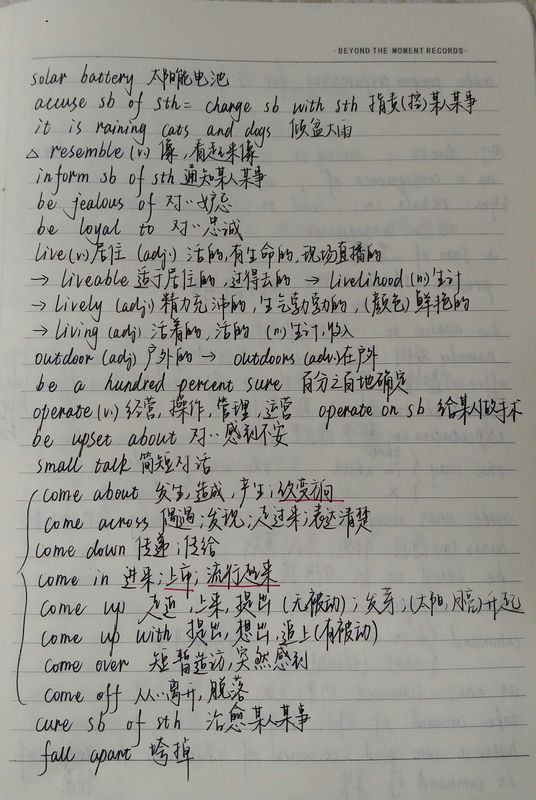 ·BEYOND THE MOMENT RECORDS·
solar battery 太阳能电池
accuse sb of sth = charge sb with sth 指责(控)某人某事
it is raining cats and dogs 倾盆大雨
△ resemble (v.) 像,看起来像
inform sb of sth 通知某人某事
be jealous of 对…妒忌
be loyal to 对…忠诚
live (v.) 居住 (adj.) 活的,有生命的,现场直播的
→ liveable 适于居住的,过得去的 → livelihood (n.) 生计
→ lively (adj.) 精力充沛的,生气勃勃的,(颜色)鲜艳的
→ living (adj) 活着的,活的 (n.) 生计,收入
outdoor (adj) 户外的 → outdoors (adv.) 在户外
be a hundred percent sure 百分之百地确定
operate (v.) 经营,操作,管理,运营 operate on sb 给某人做手术
be upset about 对…感到不安
small talk 简短对话
come about 发生,造成,产生;改变方向
come across 偶遇;发现;走过来;表达清楚
come down 传递;传给
come in 进来;上市;流行起来
come up 走近,上来,提出(无被动);发芽;(太阳,月亮)升起
come up with 提出,想出,追上(有被动)
come over 短暂造访,突然感到
come off 从…离开,脱落
cure sb of sth 治愈某人某事
fall apart 垮掉